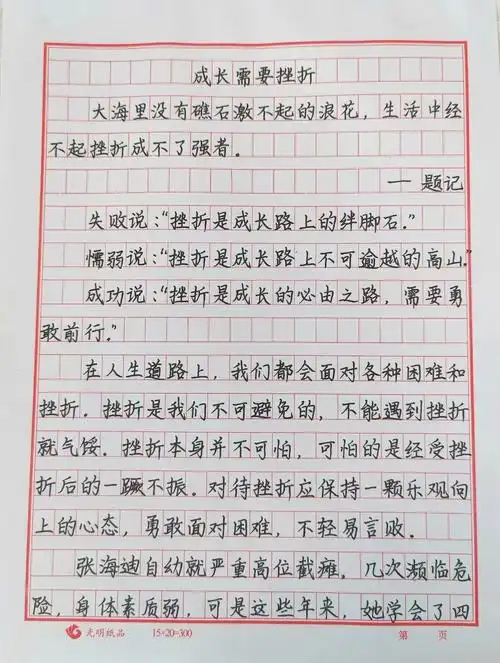 成长需要挫折
大海里没有礁石激不起的浪花，生活中经
不起挫折成不了强者。
— 题记
失败说：“挫折是成长路上的绊脚石。”
懦弱说：“挫折是成长路上不可逾越的高山。”
成功说：“挫折是成长的必由之路，需要勇
敢前行。”
在人生道路上，我们都会面对各种困难和
挫折．挫折是我们不可避免的，不能遇到挫折
就气馁．挫折本身并不可怕，可怕的是经受挫
折后的一蹶不振．对待挫折应保持一颗乐观向
上的心态，勇敢面对困难，不轻易言败。
张海迪自幼就严重高位截瘫，几次濒临危
险，身体素质弱，可是这些年来，她学会了四
光明纸品 15×20=300 第 页